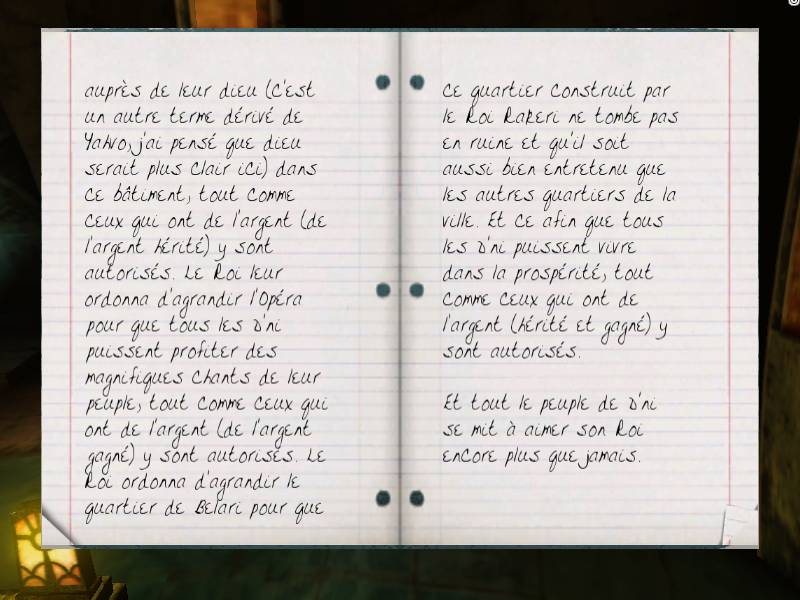 auprès de leur dieu (c'est
un autre terme dérivé de
Yahvo, j'ai pensé que dieu
serait plus clair ici) dans
ce bâtiment, tout comme
ceux qui ont de l'argent (de
l'argent hérité) y sont
autorisés. Le Roi leur
ordonna d'agrandir l'Opéra
pour que tous les D'ni
puissent profiter des
magnifiques chants de leur
peuple, tout comme ceux qui
ont de l'argent (de l'argent
gagné) y sont autorisés. Le
Roi ordonna d'agrandir le
quartier de Belari pour que
ce quartier construit par
le Roi Rakeri ne tombe pas
en ruine et qu'il soit
aussi bien entretenu que
les autres quartiers de la
ville. Et ce afin que tous
les D'ni puissent vivre
dans la prospérité, tout
comme ceux qui ont de
l'argent (hérité et gagné) y
sont autorisés.
Et tout le peuple de D'ni
se mit à aimer son Roi
encore plus que jamais.